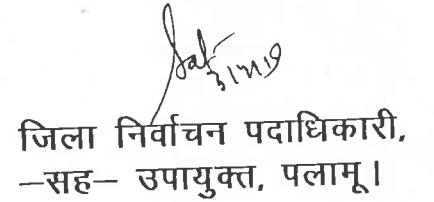 जिला निर्वाचन पदाधिकारी,
–सह– उपायुक्त, पलामू।